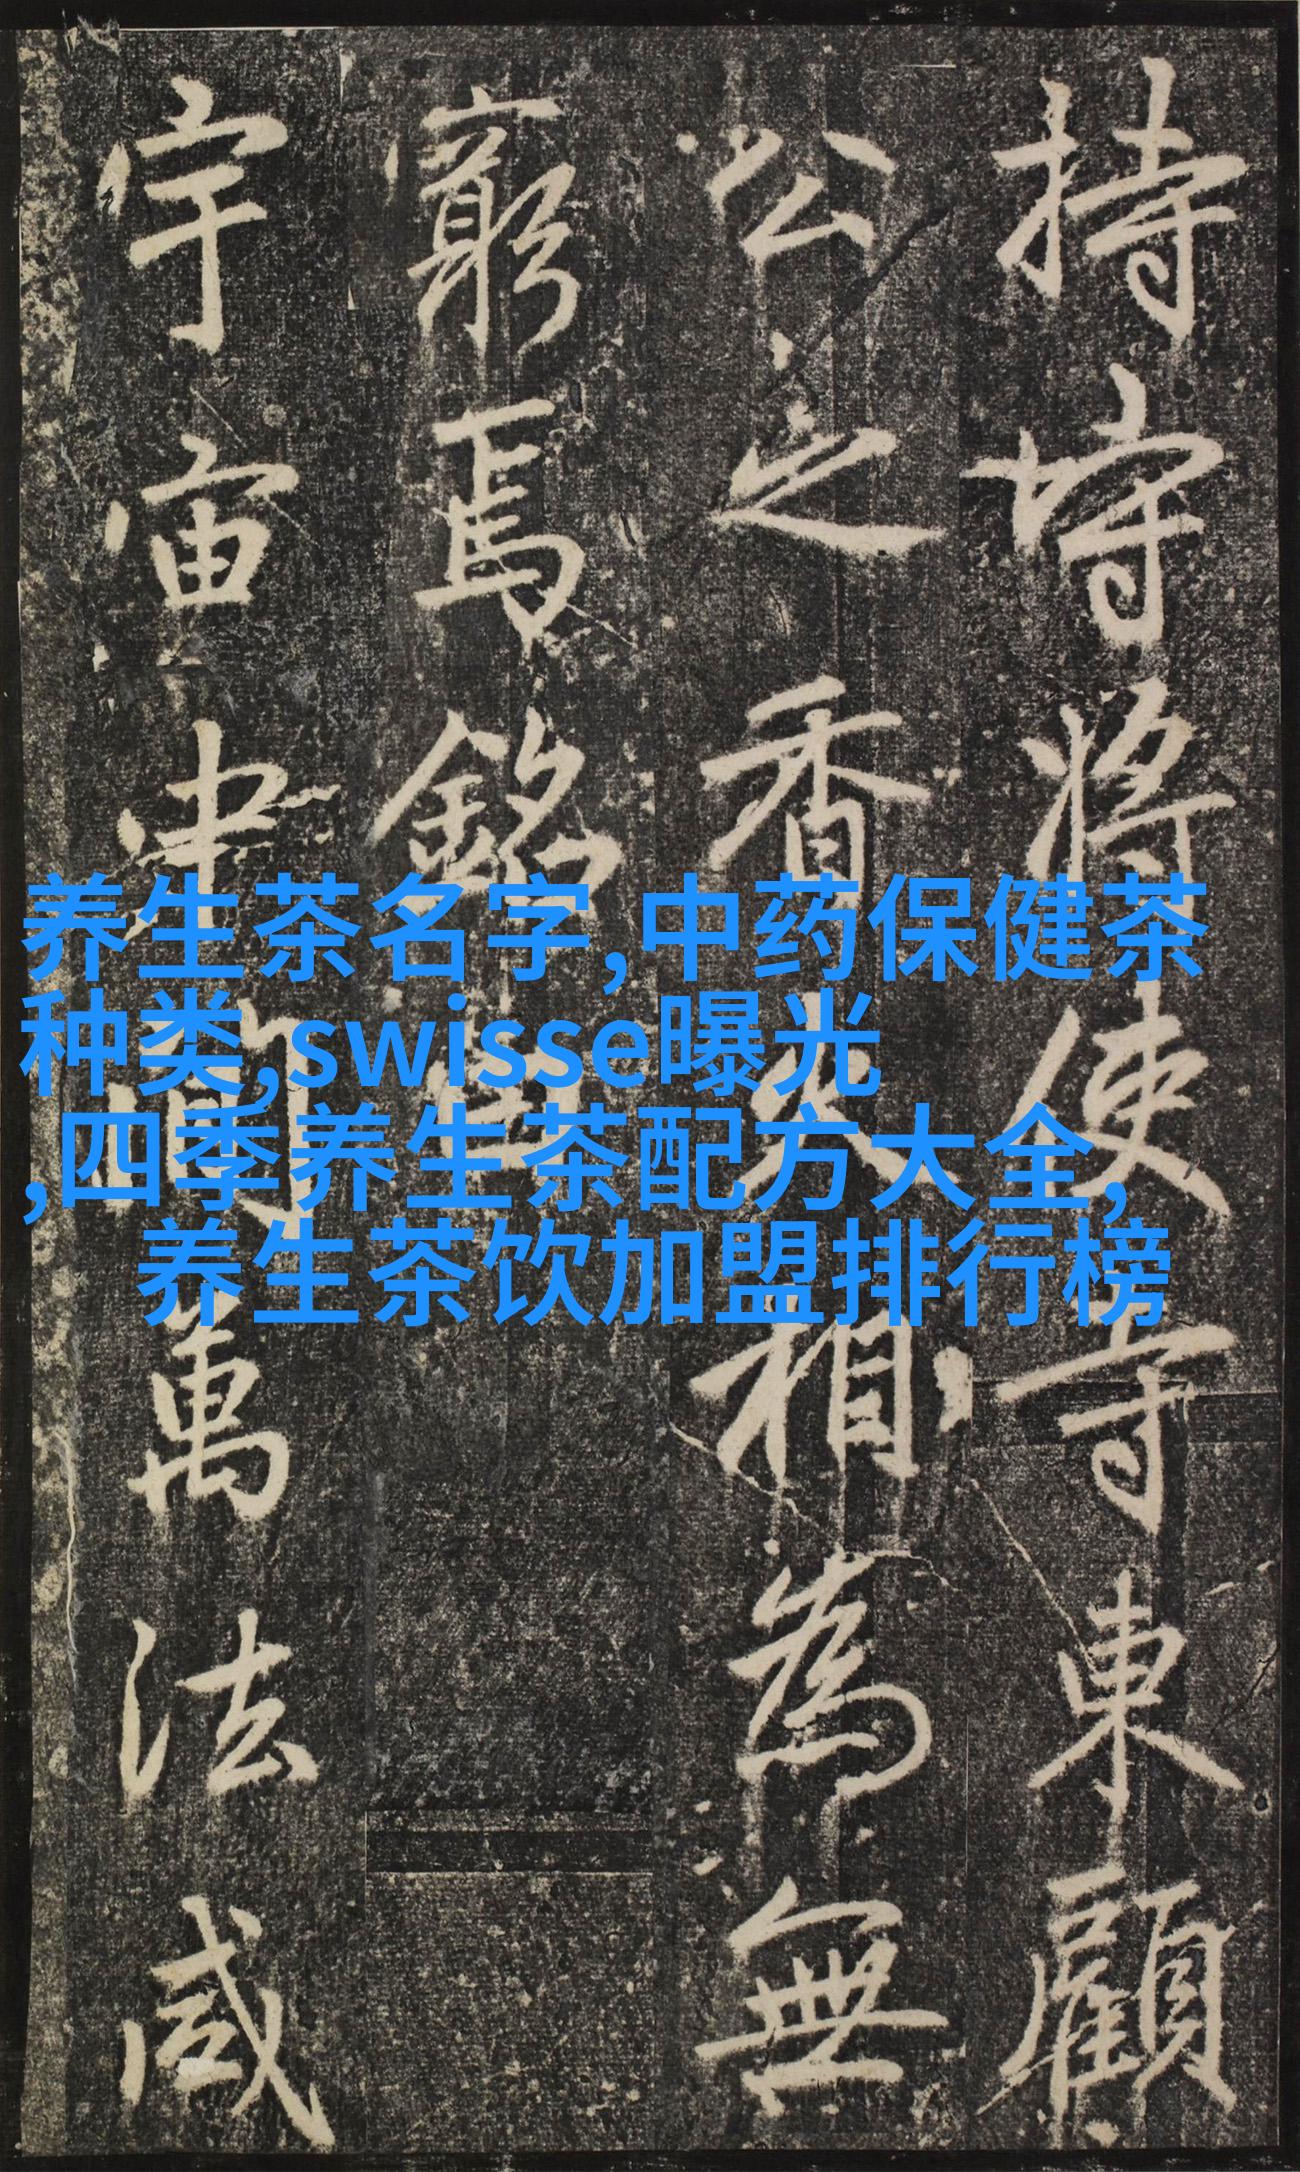 持將使寺東顧
公之香火相為無
窮焉銘曰
宇宙中間萬法咸
养生茶名字,中药保健茶
种类,swisse曝光
,四季养生茶配方大全,
养生茶饮加盟排行榜